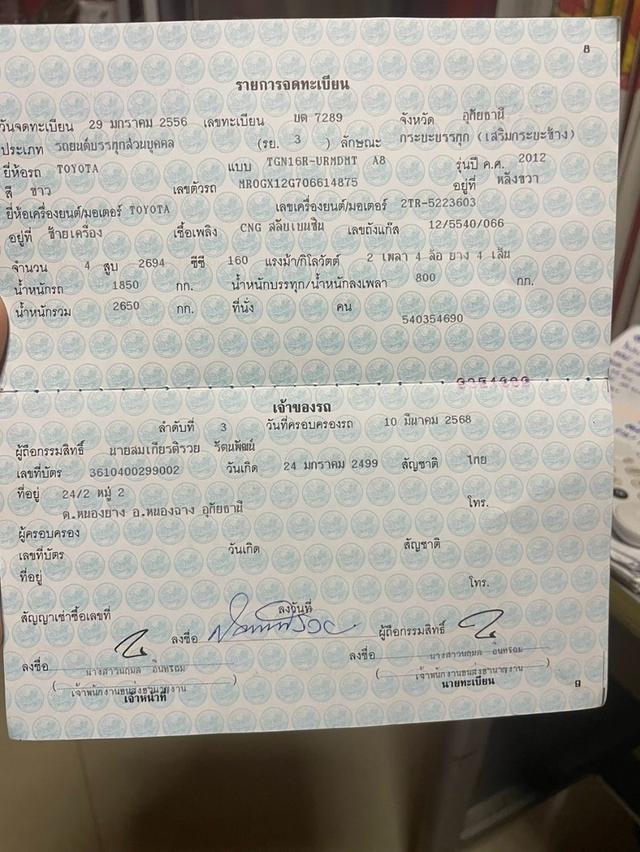 8
รายการจดทะเบียน
วันจดทะเบียน 29 มกราคม 2556 เลขทะเบียน บต 7289 จังหวัด อุทัยธานี
ประเภท รถยนต์บรรทุกส่วนบุคคล (รย. 3 ) ลักษณะ กระบะบรรทุก (เสริมกระบะข้าง)
ยี่ห้อรถ TOYOTA แบบ TGN16R-URMDMT A8 รุ่นปี ค.ศ. 2012
สี ขาว เลขตัวรถ MR0GX12G706614875 อยู่ที่ หลังขวา
ยี่ห้อเครื่องยนต์/มอเตอร์ TOYOTA เลขเครื่องยนต์/มอเตอร์ 2TR-5223603
อยู่ที่ ซ้ายเครื่อง เชื้อเพลิง CNG สลับเบนซิน เลขถังแก๊ส 12/5540/066
จำนวน 4 สูบ 2694 ซีซี 160 แรงม้า/กิโลวัตต์ 2 เพลา 4 ล้อ ยาง 4 เส้น
น้ำหนักรถ 1850 กก. น้ำหนักบรรทุก/น้ำหนักลงเพลา 800 กก.
น้ำหนักรวม 2650 กก. ที่นั่ง คน
540354690
เจ้าของรถ
ลำดับที่ 3 วันที่ครอบครองรถ 10 มีนาคม 2568
ผู้ถือกรรมสิทธิ์ นายสมเกียรติรวย รัตนพัฒน์
เลขที่บัตร 3610400299002 วันเกิด 24 มกราคม 2499 สัญชาติ ไทย
ที่อยู่ 24/2 หมู่ 2
ต.หนองยาง อ.หนองฉาง อุทัยธานี โทร.
ผู้ครอบครอง
เลขที่บัตร วันเกิด สัญชาติ
ที่อยู่ โทร.
สัญญาเช่าซื้อเลขที่ ลงวันที่
ลงชื่อ ผู้ถือกรรมสิทธิ์
ลงชื่อ ลงชื่อ
เจ้าพนักงานขนส่งชำนาญงาน เจ้าพนักงานขนส่งชำนาญงาน
เจ้าหน้าที่ นายทะเบียน
9